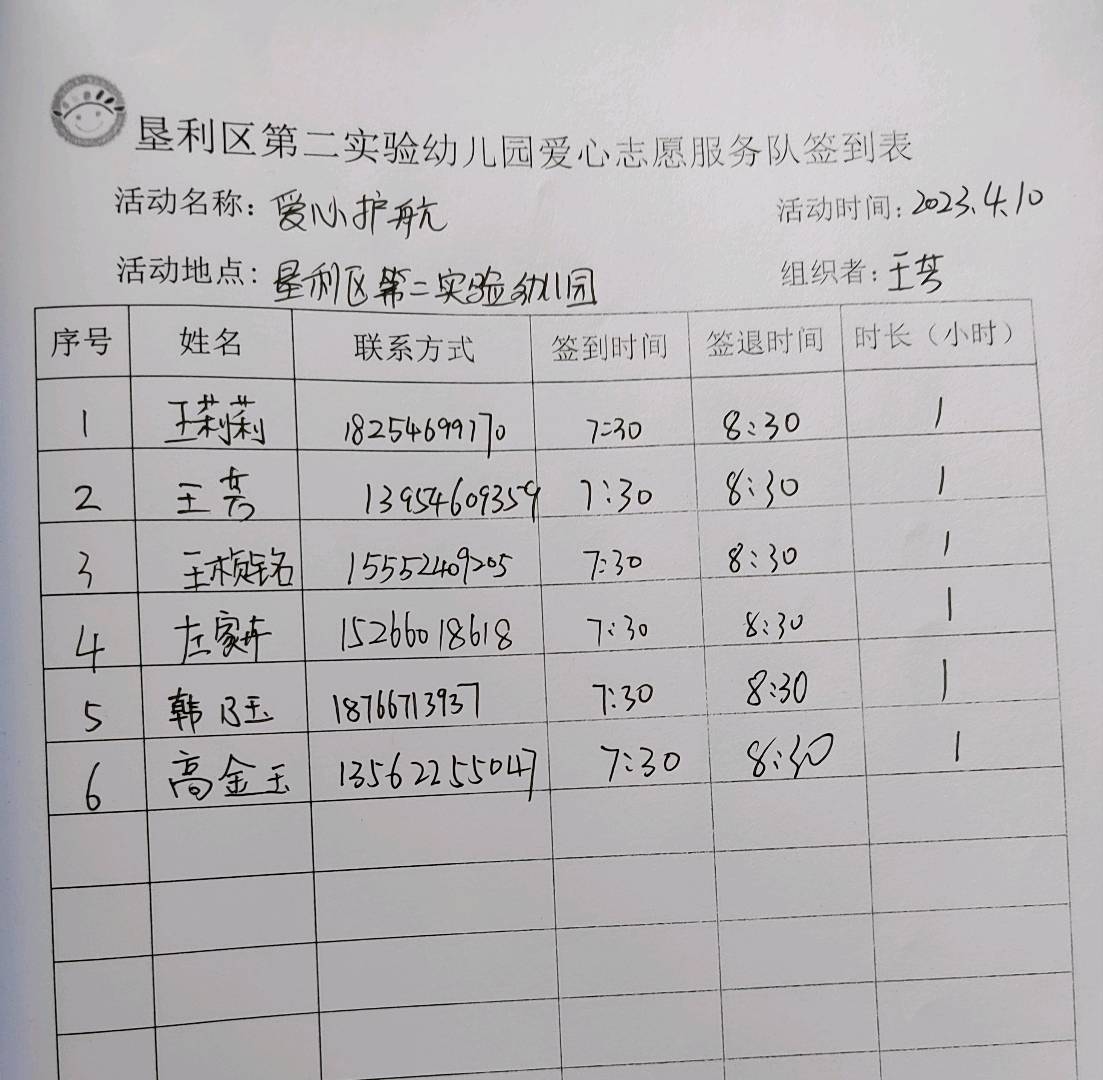 垦利区第二实验幼儿园爱心志愿服务队签到表
活动名称：爱心护航 活动时间：2023.4.10
活动地点：垦利区第二实验幼儿园 组织者：王芸
序号 姓名 联系方式 签到时间 签退时间 时长（小时）
1 王莉莉 18254699170 7:30 8:30 1
2 王芸 13954609359 7:30 8:30 1
3 王桢铭 15552409205 7:30 8:30 1
4 左家卉 15266018618 7:30 8:30 1
5 韩乃玉 18766713937 7:30 8:30 1
6 高金玉 13562255047 7:30 8:30 1